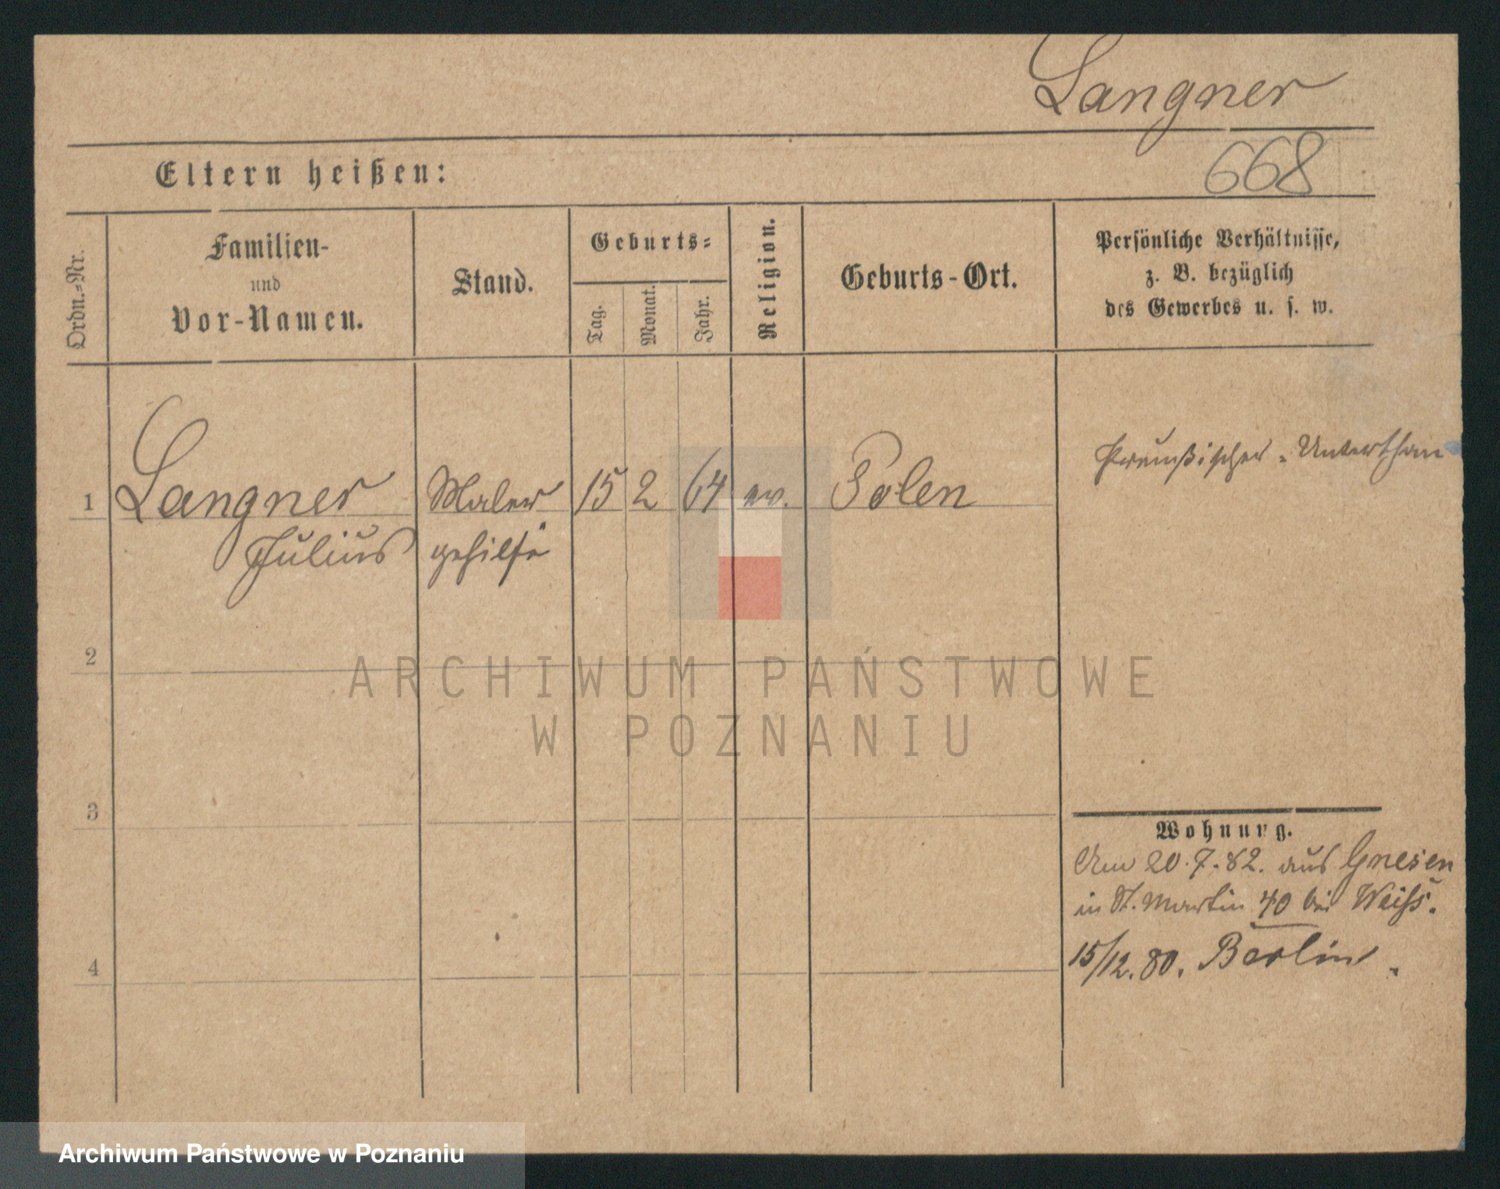 Langner
668
Eltern heißen:
Ordn.-Nr.
Familien-
und
Vor-Namen.
Stand.
Geburts-
Tag.
Monat.
Jahr.
Religion.
Geburts-Ort.
Persönliche Verhältnisse,
z. B. bezüglich
des Gewerbes u. s. w.
1 Langner Maler 15 2 64 ev. Polen Preußischer-Unterthan
Julius gehilfe
2
ARCHIWUM PAŃSTWOWE
W POZNANIU
3
Wohnung.
Am 20.7.82. aus Gnesen
in St. Martin 70 bei Weiß.
15/12.80. Berlin.
4
Archiwum Państwowe w Poznaniu